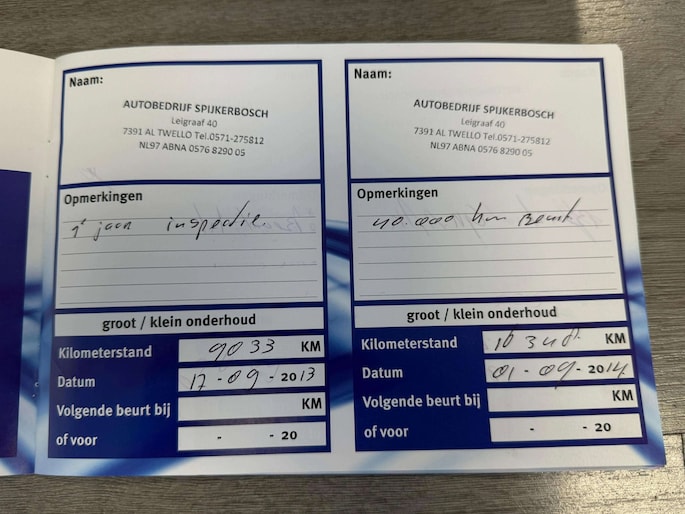 Naam:
AUTOBEDRIJF SPIJKERBOSCH
Leigraaf 40
7391 AL TWELLO Tel.0571-275812
NL97 ABNA 0576 8290 05
Opmerkingen
1e jaar inspectie.
groot / klein onderhoud
Kilometerstand 9033 KM
Datum 17-09-2013
Volgende beurt bij KM
of voor - - 20
Naam:
AUTOBEDRIJF SPIJKERBOSCH
Leigraaf 40
7391 AL TWELLO Tel.0571-275812
NL97 ABNA 0576 8290 05
Opmerkingen
40.000 km Beurt
groot / klein onderhoud
Kilometerstand KM
Datum 01-09-2014
Volgende beurt bij KM
of voor - - 20